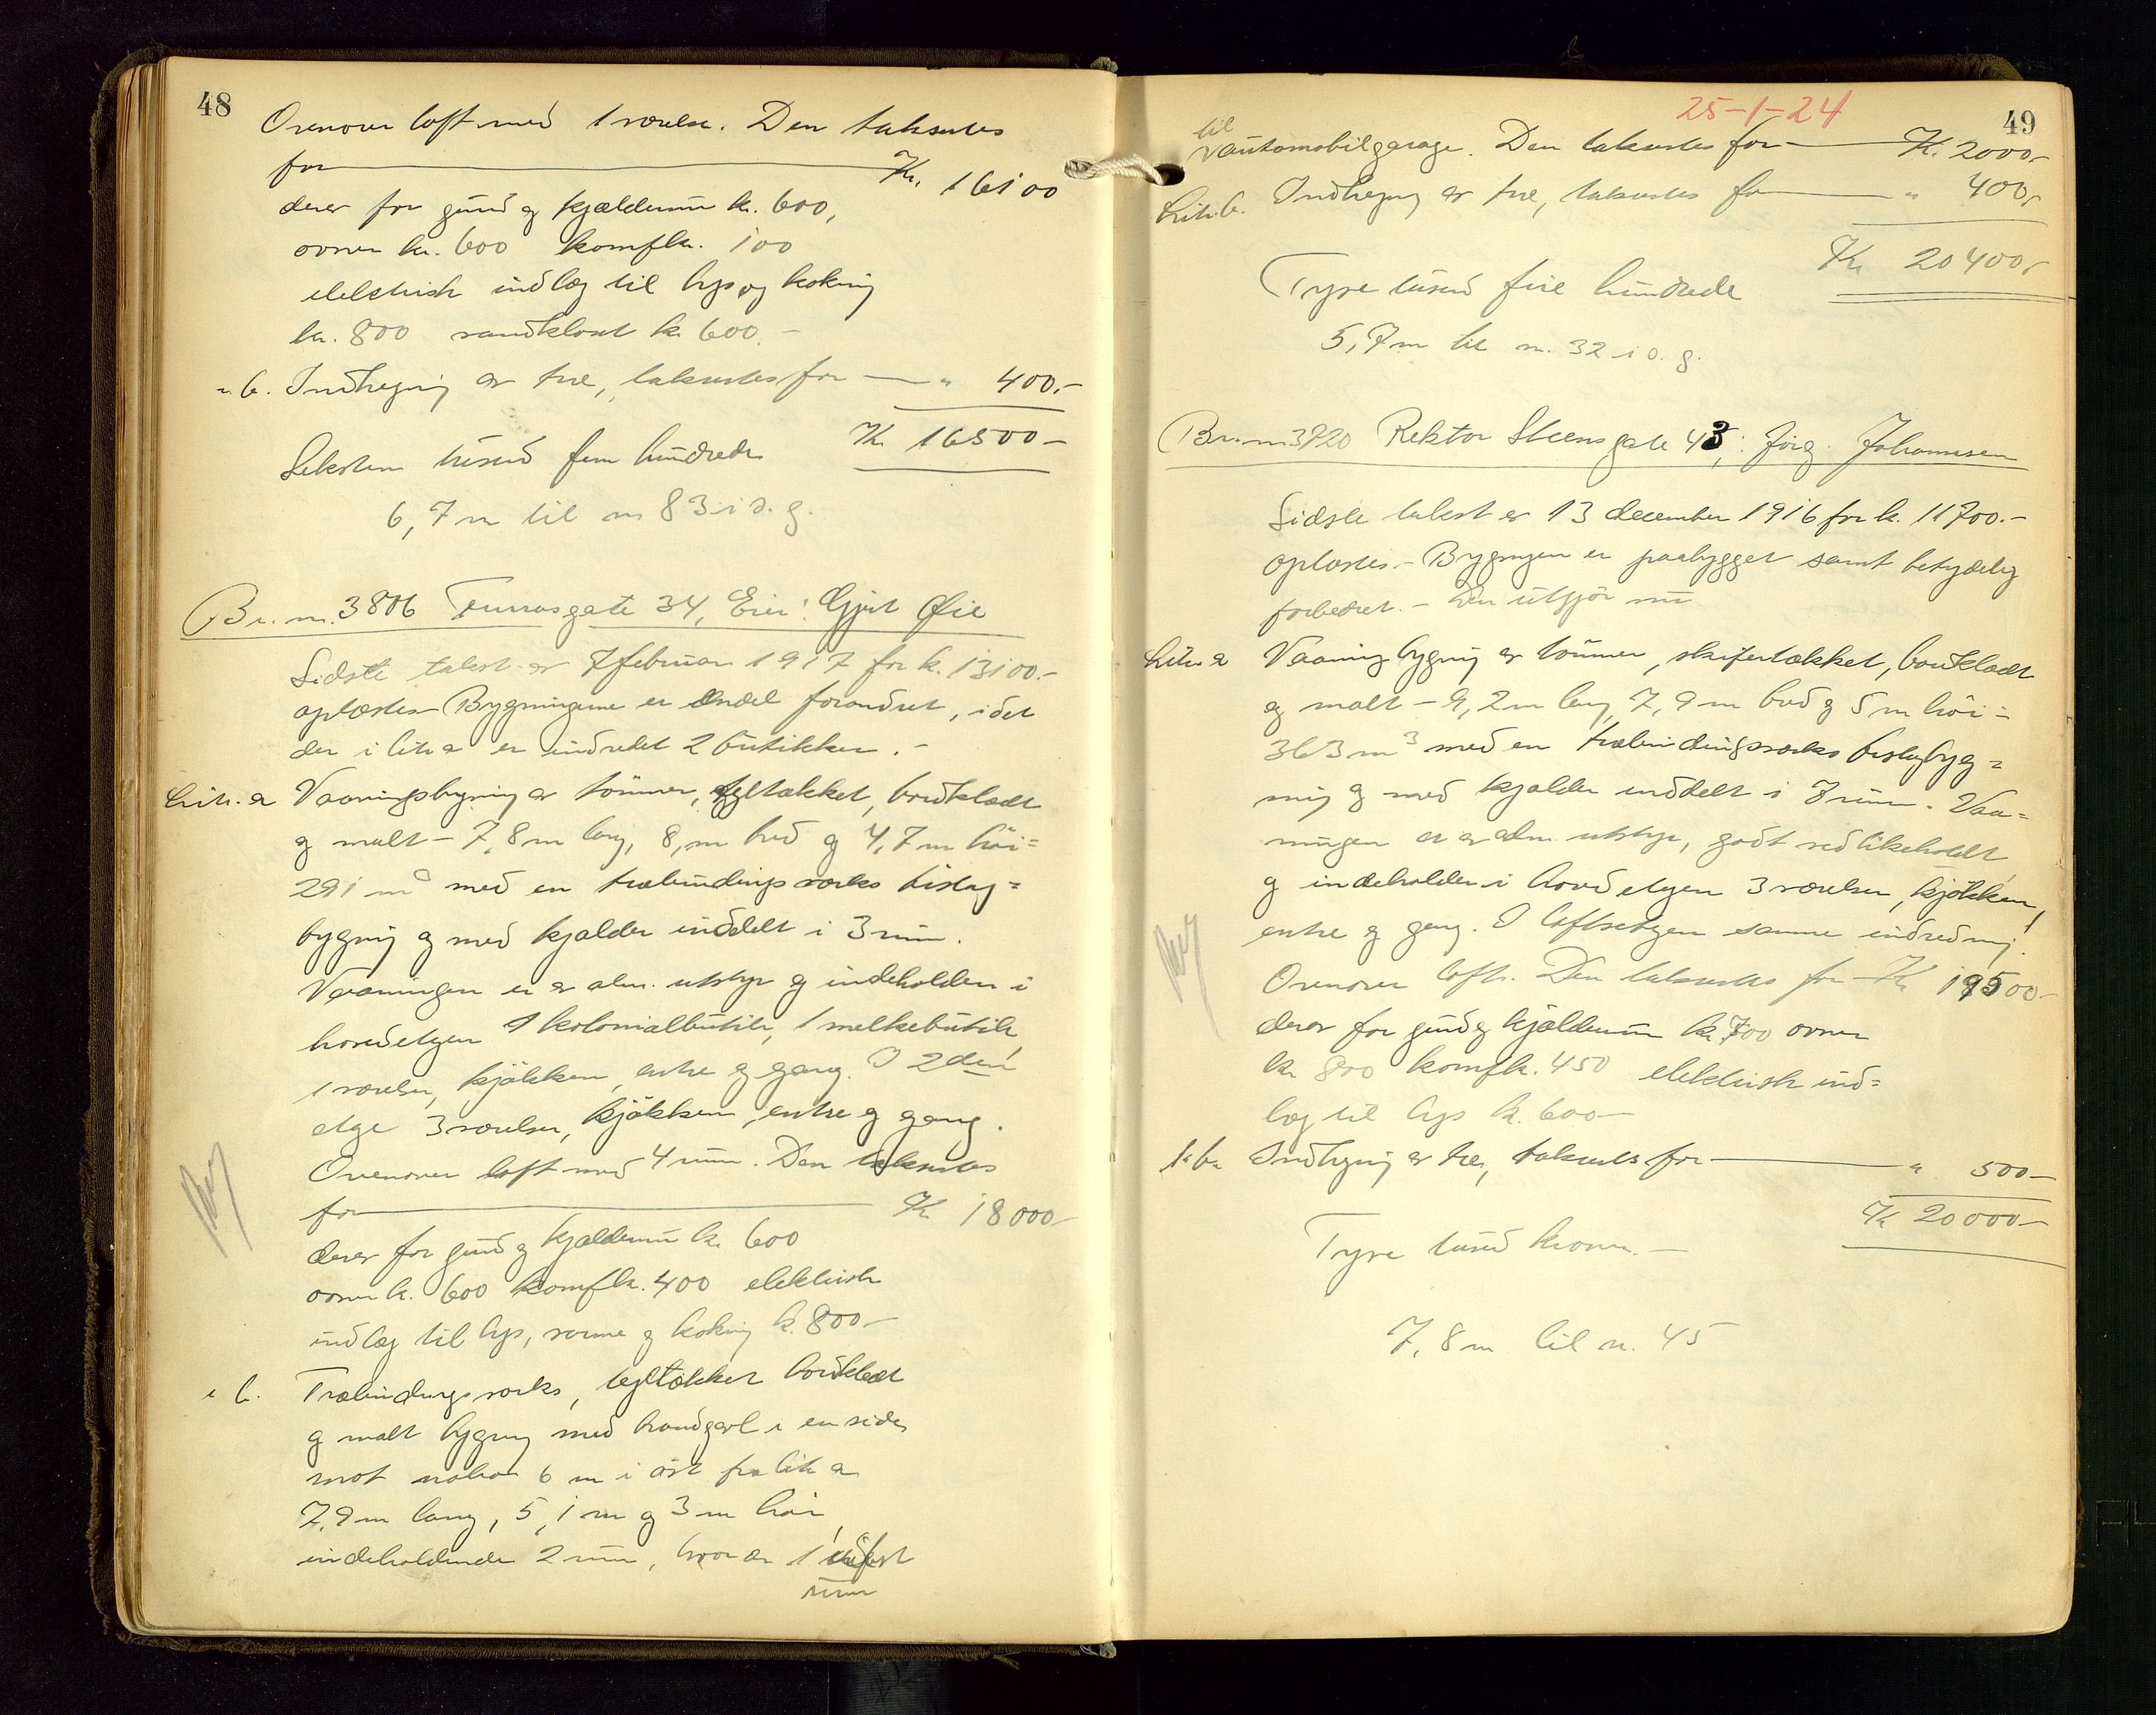 48
Ovenover loft med 1 værelse. Den taksertes
for Kr. 16100
derav for grund og kjælderrum kr. 600,
ovner kr. 600 komf kr. 100
elektrisk indlæg til lys og kokning
kr. 800 vandklosat kr. 600.-
" b. Indhegning av træ, taksertes for " 400.-
Seksten tusend fem hundrede Kr. 16500-
6,7 m til nr 83 i s. g.
Br. nr. 3806 gate 34, Eier: Gjert Øie
Sidste takst er 7 februar 1917 for kr. 13100.-
oplæstes- Bygningerne er endel forandret, idet
der i litr a er indredet 2 butikker.-
Litr. a Vaaningsbygning av tömmer, tegltækket, bordklædt
og malt - 7,8 m lang, 8, m bred og 4,7 m höi =
291 m³ med en træbindingsværks bislag=
bygning og med kjælder inddelt i 3 rum.
Vaaningen er av alm. utstyr og indeholder i
hovedetagen 1 kolonialbutik, 1 melkebutik,
1 værelse, kjökken, entre og gang. I 2den
etge 3 værelser, kjökken, entre og gang.
Ovenover loft med 4 rum. Den taksertes
for Kr 18000-
derav for grund og kjælderrum kr. 600
ovner kr. 600 komf kr. 400 elektrisk
indlæg til lys, varme og kokning kr. 800-
" b. Træbindingsværks, tegltækket bordklædt
og malt bygning med brandgavl i en side
mot nabo 6 m i öst fra litr a
7,9 m lang, 5,1 m og 3 m höi,
indeholdende 2 rum, hvorav 1
rum
25-1-24
49
til
automobilgarage. Den taksertes for Kr. 2000,-
Litr. b. Indhegning av træ, taksertes for " 400,-
Kr 20400,-
Tyve tusend fire hundrede
5,7 m til nr. 32 i s. g.
Br. nr 3720 Rektor Steensgate 43; : Jörg. Johannesen
Sidste takst er 13 december 1916 for kr. 11700.-
oplæstes.- Bygningen er paabygget samt betydelig
forbedret.- Den utgjör nu
Litr. a Vaaningsbygning av tömmer, skifertækket, bordklædt
og malt - 9,2 m lang, 7,9 m bred og 5 m höi =
363 m³ med en træbindingsværks bislagbyg=
ning og med kjælder inddelt i 3 rum. Vaa=
ningen er av alm. utstyr, godt vedlikeholdt
og indeholder i hovedetgen 3 værelser, kjökken,
entre og gang. I loftsetgen samme indredning.
Ovenover loft. Den taksertes for Kr 19500-
derav for grund og kjælderrum kr. 700 ovner
kr 800 komf kr. 450 elektrisk ind=
læg til lys kr. 600-
L. b. Indhegning av træ, taksertes for " 500-
Kr 20000-
Tyve tusend kroner.-
7,8 m til nr. 45